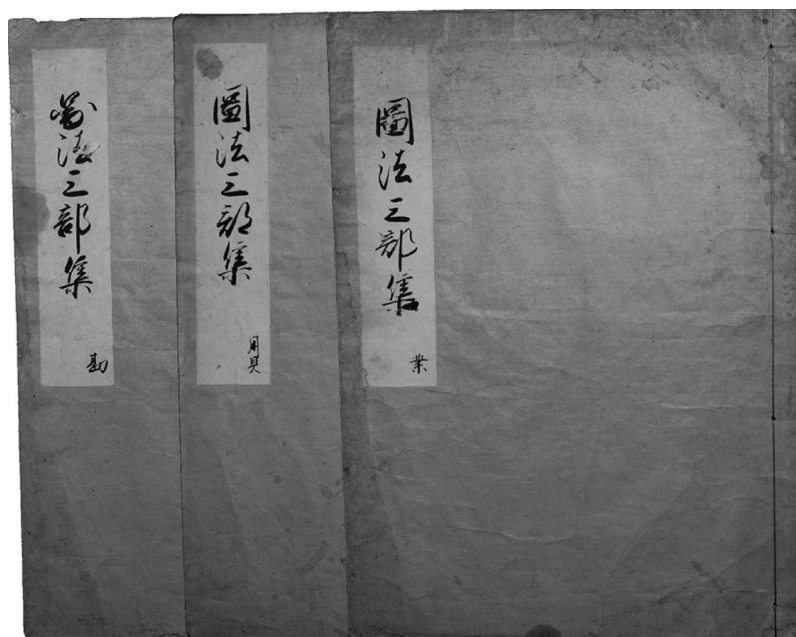 圖法三部集
業
圖法三部集
圖法三部集
勘